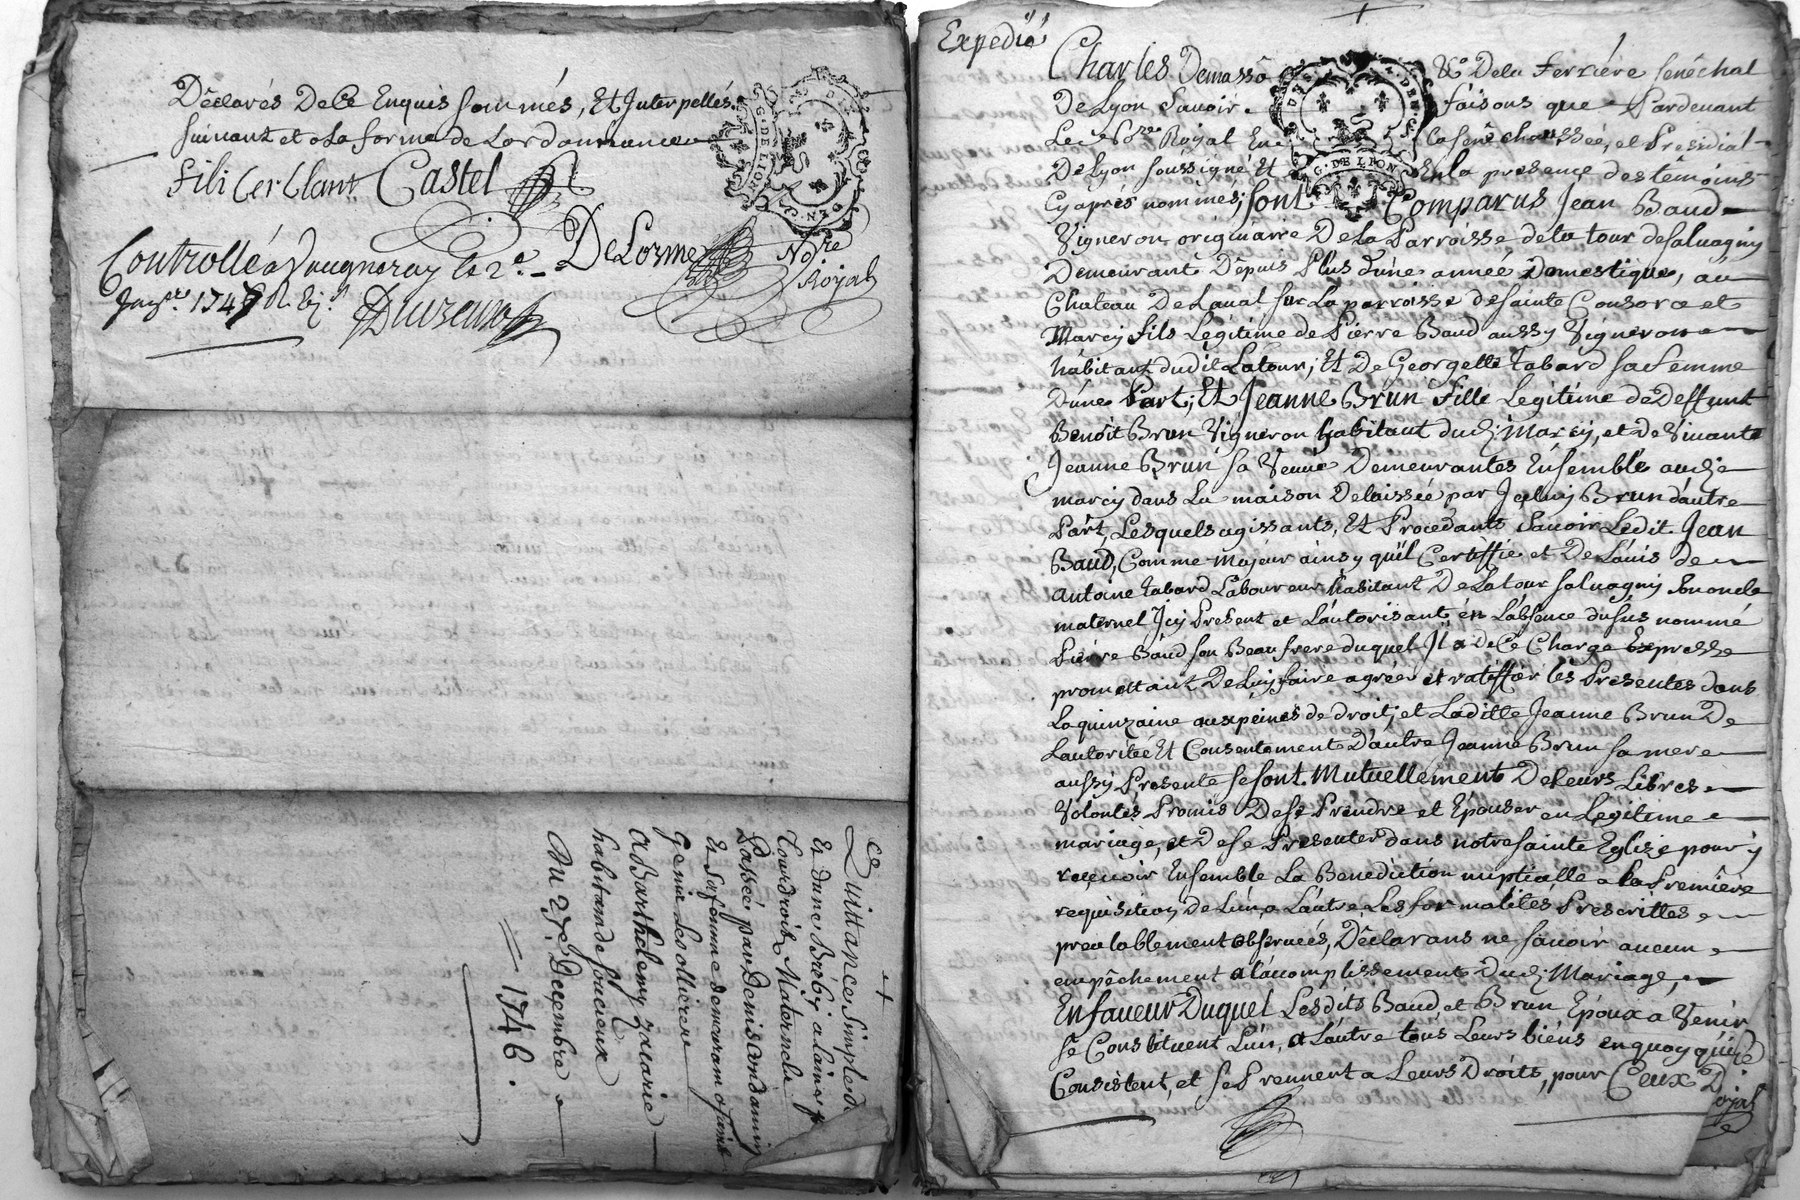 Déclarés De Ce Enquis sommés, Et Interpellés
suivant et a la forme de Lordonnance
fili Castel
DeLorme Nore Royal
Controllé a Vaugneray le 2e
Janer 1747 R.
G. DE LION
GEN.
ce
Quittance simple de
Et dune
Tour droits Maternels
Passée par Denis
Et sa femme demeurans a Sainte
Genis Les ollieres
A Barthelemy
habitant de soucieux
Du 27e Decembre
1746.
Expedié
Charles Demasso &c De la Ferriere senéchal
De Lyon Savoir faisons que Pardevant
Le Nre Royal En la senéchaussée, et Présidial
De Lyon soussigné Et En la presence des témoins
Cy aprés nommés; sont Comparus Jean Baud
Vigneron originaire De La Parroisse de la tour de salvagny
Demeurant Depuis Plus d'une année Domestique, au
Chateau De Laval sur La parroisse de sainte Consorce et
Marcy fils Legitime de Pierre Baud aussy Vigneron
habitant dudit Latour; Et De Georgette Tabard sa femme
Dune Part; Et Jeanne Brun fille Legitime de Deffunt
Benoit Brun Vigneron habitant dud: Marcy, et de Vivante
Jeanne Brun sa Veuve Demeurantes Ensemble aud:
marcy dans La maison Delaissée par Iceluy Brun d'autre
Part, Lesquels agissants, Et Procedants Savoir Ledit Jean
Baud, Comme Majeur ainsy quil Certiffie et De L'avis de
antoine Tabard Laboureur habitant De La tour salvagny son oncle
maternel Icy Present et L'autorisant en L'absence du sus nommé
Pierre Baud son Beau frere duquel Il a De Ce Charge Expresse
promettant De Luy faire agréer et ratiffier les Presentes dans
La quinzaine aux peines de droit; et Laditte Jeanne Brun De
Lautoritée Et Consentement D'autre Jeanne Brun sa mere
aussy Presente se sont Mutuellement De Leurs Libres
Volontés Promis De se Prendre et Epouser en Legitime
mariage, et De se Presenter dans notre sainte Eglise pour y
recevoir Ensemble La Benediction nuptialle a la Premiere
requisition De Lun, a Lautre, Les formalités Prescrittes
prealablement observées, Déclarans ne savoir aucun
empêchement a lacomplissement Dud: Mariage,
En faveur Duquel Lesdits Baud, et Brun Epoux a Venir
se Constituent L'un, a L'autre tous Leurs biens en quoy quils
Consistent, et se Prennent a Leurs Droits, pour Ceux